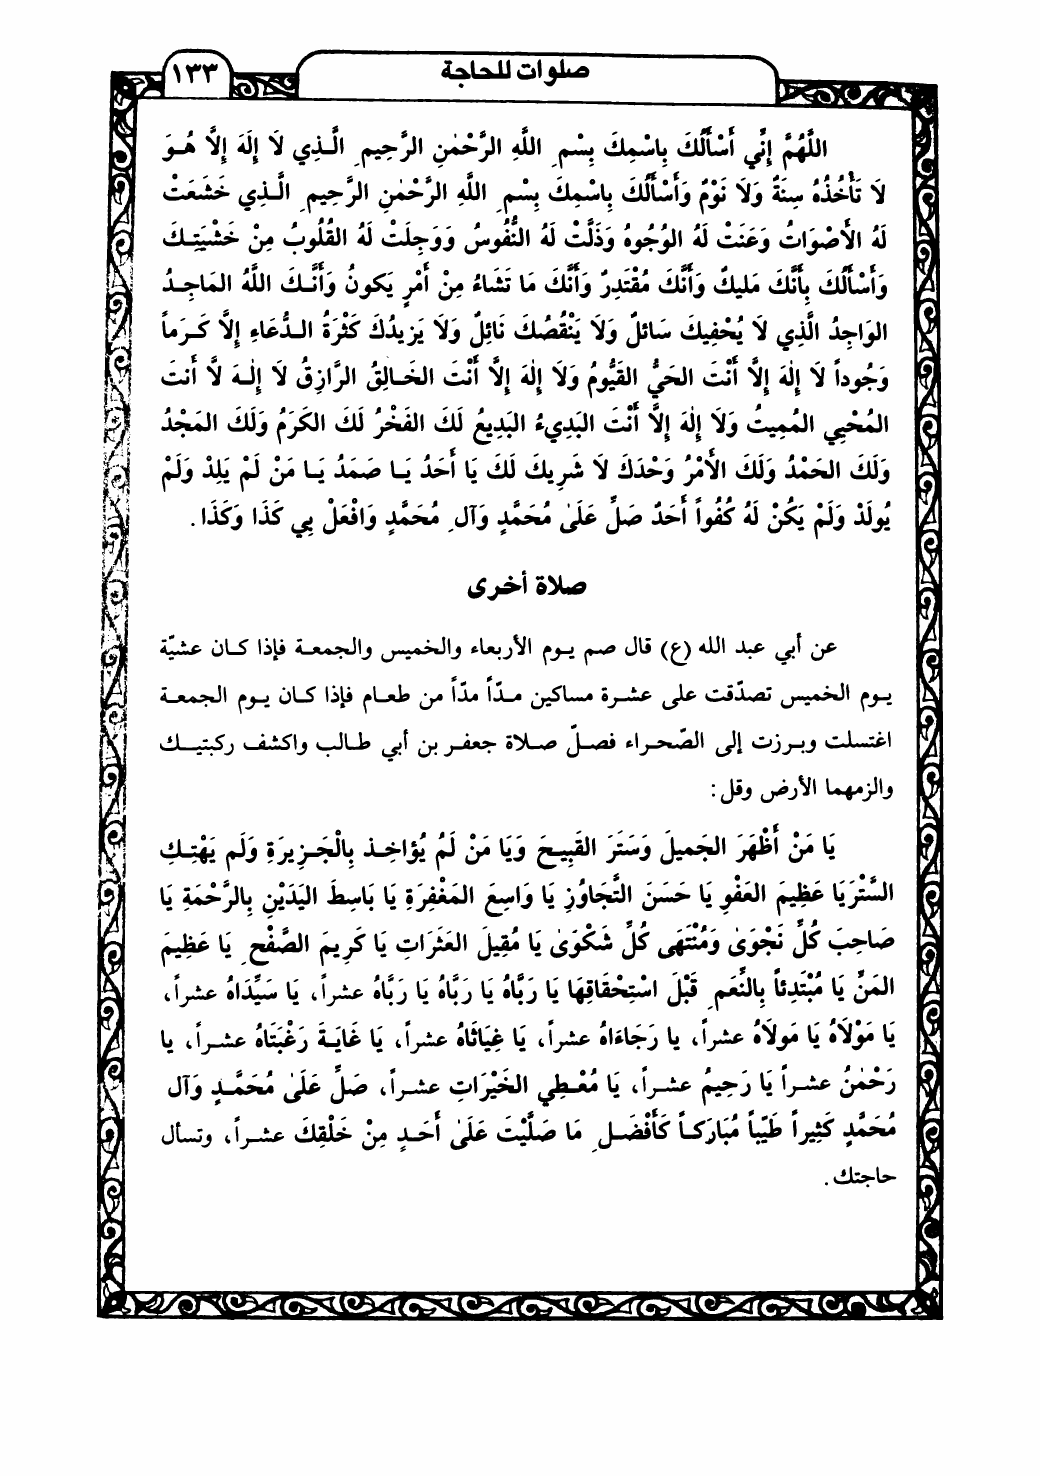 صلوات للحاجة
١٣٣
اللَّهُمَّ إِنِّي أَسْأَلُكَ بِاسْمِكَ بِسْمِ اللَّهِ الرَّحْمٰنِ الرَّحِيمِ الَّذِي لَا إِلَهَ إِلَّا هُوَ
لَا تَأْخُذُهُ سِنَةٌ وَلَا نَوْمٌ وَأَسْأَلُكَ بِاسْمِكَ بِسْمِ اللَّهِ الرَّحْمٰنِ الرَّحِيمِ الَّذِي خَشَعَتْ
لَهُ الأَصْوَاتُ وَعَنَتْ لَهُ الوُجُوهُ وَذَلَّتْ لَهُ النُّفُوسُ وَوَجِلَتْ لَهُ القُلُوبُ مِنْ خَشْيَتِكَ
وَأَسْأَلُكَ بِأَنَّكَ مَلِيكٌ وَأَنَّكَ مُقْتَدِرٌ وَأَنَّكَ مَا تَشَاءُ مِنْ أَمْرٍ يَكونُ وَأَنَّكَ اللَّهُ المَاجِدُ
الوَاجِدُ الَّذِي لَا يُحْفِيكَ سَائلٌ وَلَا يَنْقُصُكَ نَائِلٌ وَلَا يَزِيدُكَ كَثْرَةُ الدُّعَاءِ إِلَّا كَرَماً
وَجُوداً لَا إِلٰهَ إِلَّا أَنْتَ الحَيُّ القَيُّومُ وَلَا إِلٰهَ إِلَّا أَنْتَ الخَالِقُ الرَّازِقُ لَا إِلٰهَ لَّا أَنتَ
المُحْيِي المُمِيتُ وَلَا إِلٰهَ إِلَّا أَنْتَ البَدِيءُ البَدِيعُ لَكَ الفَخْرُ لَكَ الكَرَمُ وَلَكَ المَجْدُ
وَلَكَ الحَمْدُ وَلَكَ الأَمْرُ وَحْدَكَ لَا شَرِيكَ لَكَ يَا أَحَدُ يَا صَمَدُ يَا مَنْ لَمْ يَلِدْ وَلَمْ
يُولَدْ وَلَمْ يَكُنْ لَهُ كُفُواً أَحَدٌ صَلِّ عَلَىٰ مُحَمَّدٍ وَآلِ مُحَمَّدٍ وَافْعَلْ بِي كَذَا وَكَذَا.
صلاة أخرى
عن أبي عبد الله (ع) قال صم يوم الأربعاء والخميس والجمعة فإذا كان عشيّة
يوم الخميس تصدّقت على عشرة مساكين مدّاً مدّاً من طعام فإذا كان يوم الجمعة
اغتسلت وبرزت إلى الصّحراء فصلّ صلاة جعفر بن أبي طالب واكشف ركبتيك
والزمهما الأرض وقل:
يَا مَنْ أَظْهَرَ الجَمِيلَ وَسَتَرَ القَبِيحَ وَيَا مَنْ لَمُ يُؤاخِذ بِالْجَزِيرَةِ وَلَم يَهْتِكِ
السَّتْرَيَا عَظِيمَ العَفْوِ يَا حَسَنَ التَّجَاوُزِ يَا وَاسِعَ المَغْفِرَةِ يَا بَاسِطَ اليَدَيْنِ بِالرَّحْمَةِ يَا
صَاحِبَ كُلِّ نَجْوَىٰ وَمُنْتَهَى كُلِّ شَكْوَىٰ يَا مُقِيلَ العَثَرَاتِ يَا كَرِيمَ الصَّفْحِ يَا عَظِيمَ
المَنِّ يَا مُبْتَدِئاً بِالنِّعَمِ قَبْلَ اسْتِحْقَاقِهَا يَا رَبَّاهُ يَا رَبَّاهُ يَا رَبَّاهُ عشراً، يَا سَيِّدَاهُ عشراً،
يَا مَوْلَاهُ يَا مَولَاهُ عشراً، يا رَجَاءَاهُ عشراً، يَا غِيَاثَاهُ عشراً، يَا غَايَةَ رَغْبَتَاهُ عشراً، يا
رَحْمٰنُ عشراً يَا رَحِيمُ عشراً، يَا مُعْطِي الخَيْرَاتِ عشراً، صَلِّ عَلَىٰ مُحَمَّدٍ وَآل
مُحَمَّدٍ كَثِيراً طَيّباً مُبَارَكاً كَأَفْضَلِ مَا صَلَّيْتَ عَلَىٰ أَحَدٍ مِنْ خَلْقِكَ عشراً، وتسأل
حاجتك.